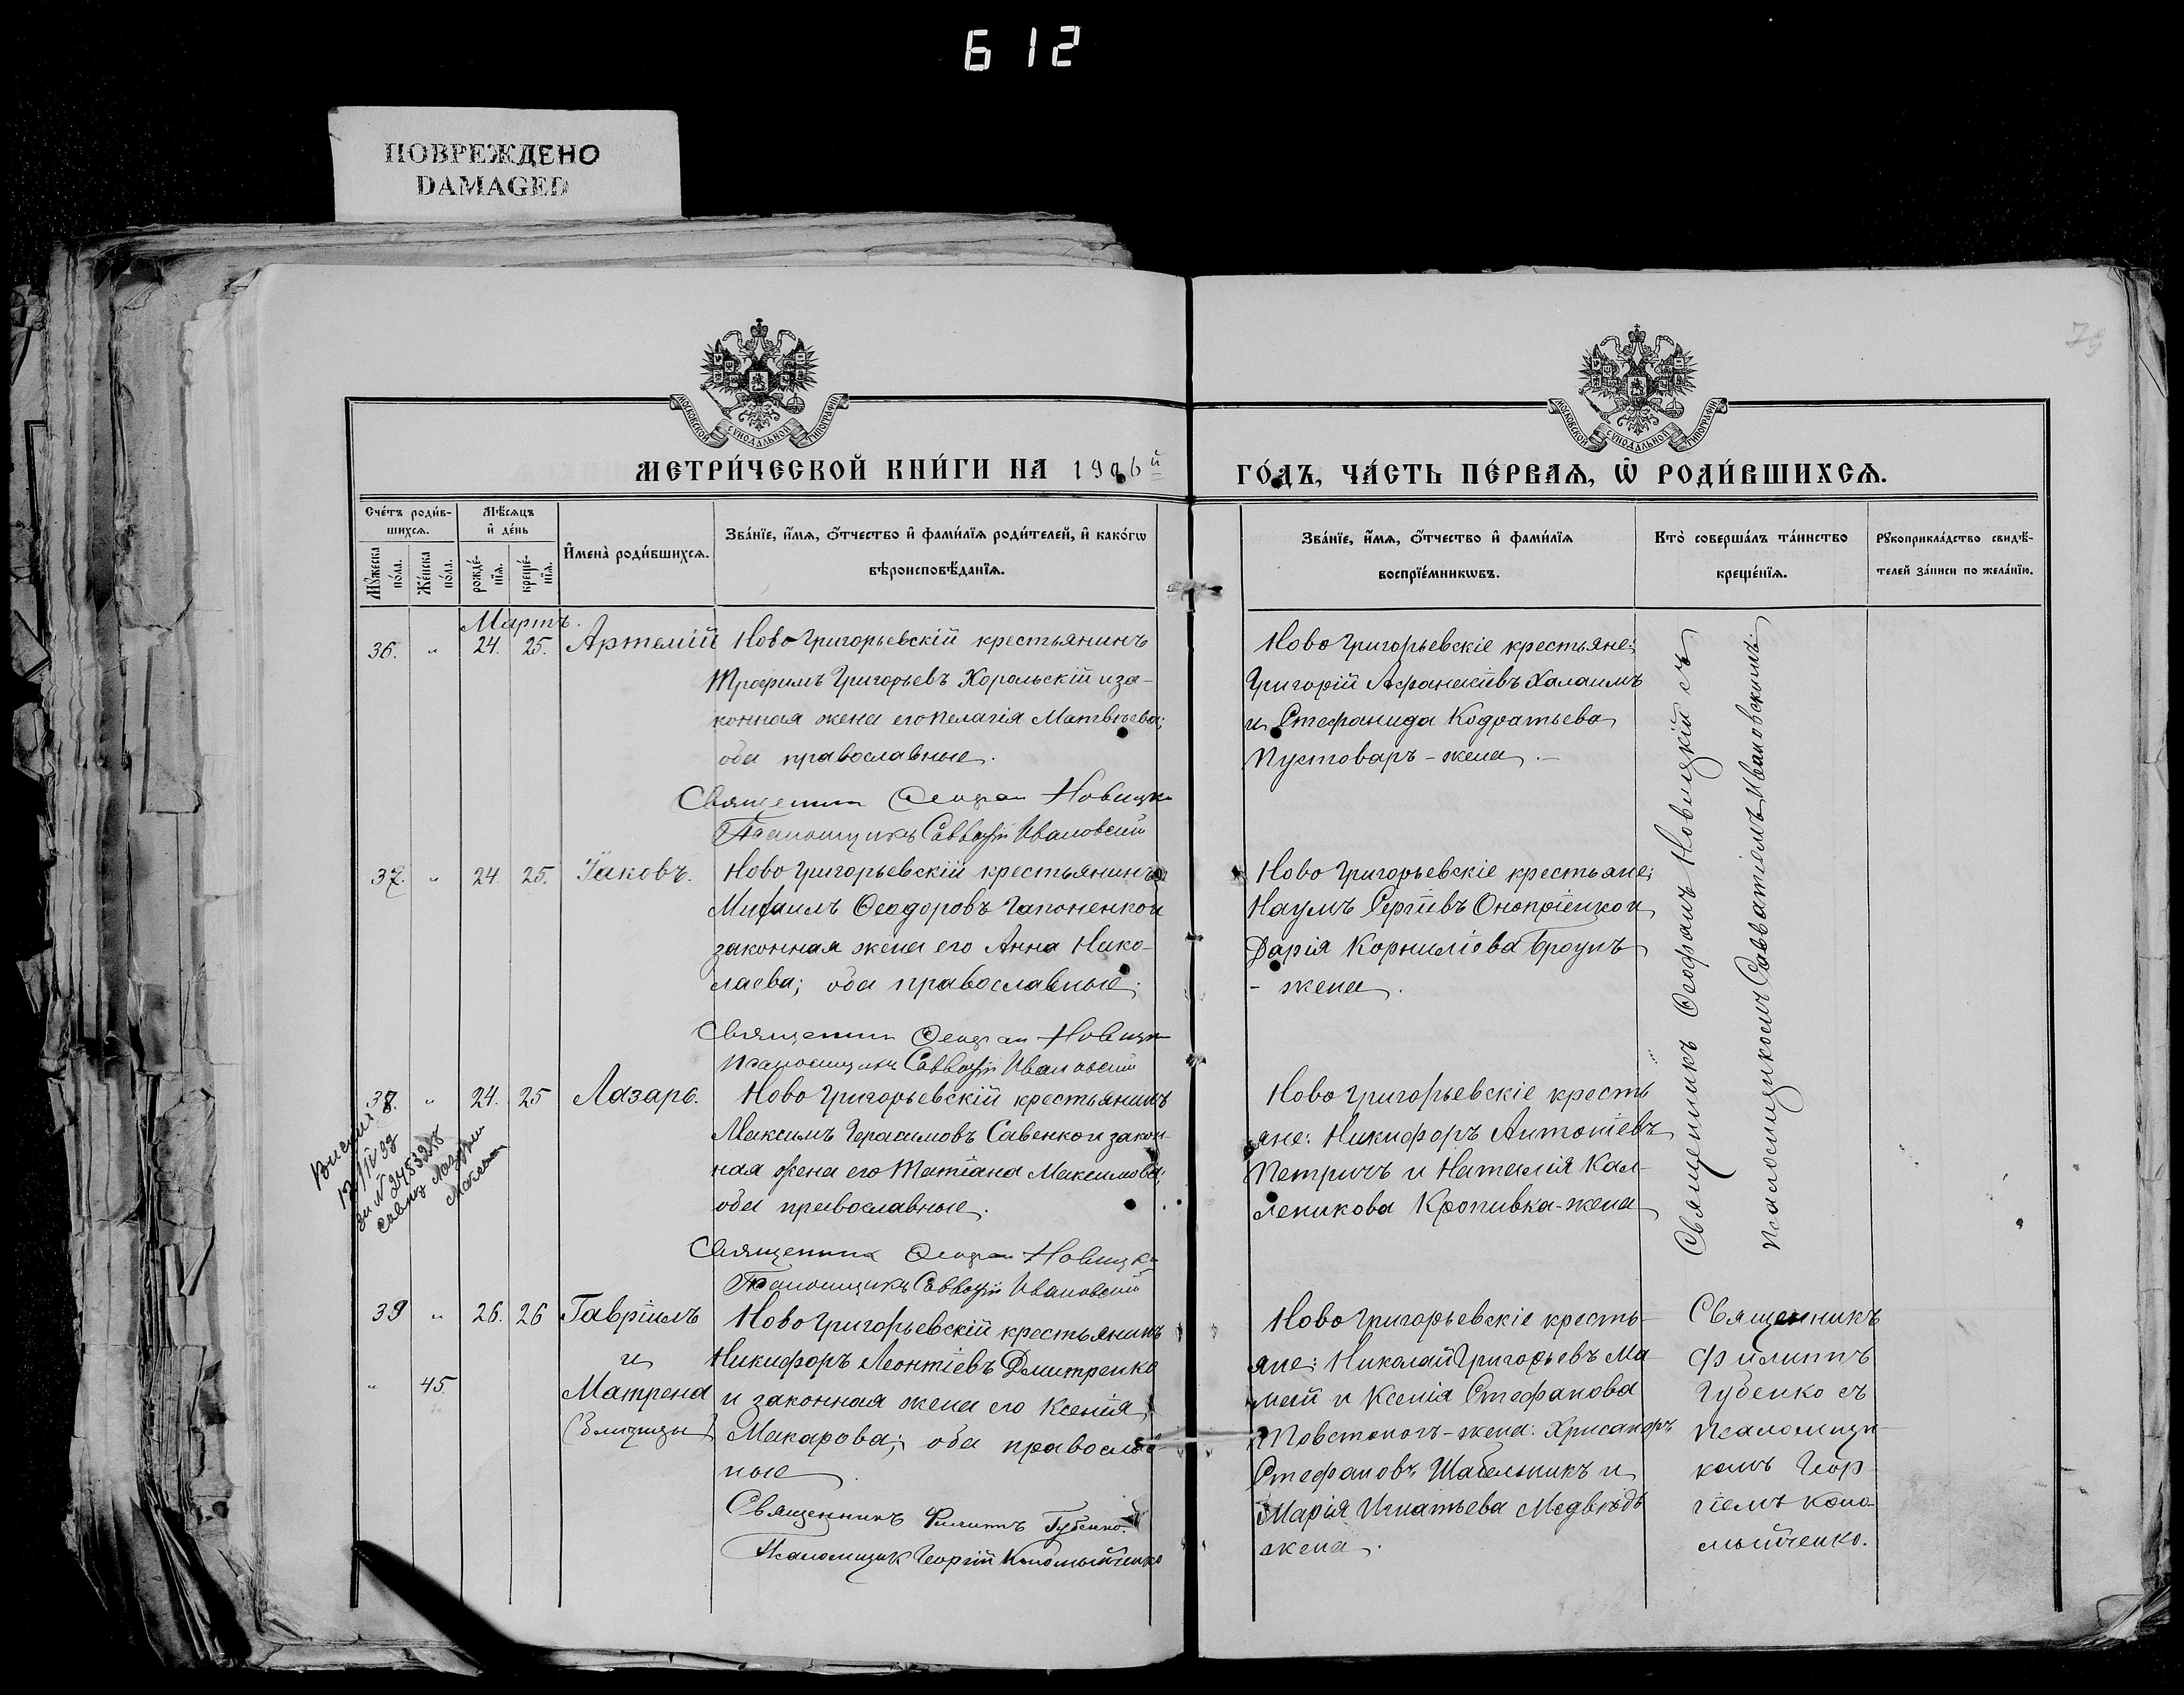 612
ПОВРЕЖДЕНО
DAMAGED
79
МОСКОВСКОЙ СУНОДАЛЬНОЙ ТИПОГРАФІИ
МОСКОВСКОЙ СУНОДАЛЬНОЙ ТИПОГРАФІИ
МЕТРИ́ЧЕСКОЙ КНИ́ГИ НА 1906й
ГО́ДЪ, ЧА́СТЬ ПЕ́РВАѦ, Ѡ РОДИ́ВШИХСѦ.
Сче́тъ роди́в-
шихсѧ.
Мꙋ́жеска по́ла.
Же́нска по́ла.
Мѣ́сѧцъ
и҆ де́нь
рожде́-
нїѧ.
креще́-
нїѧ.
И҆мена̀ роди́вшихсѧ.
Зва́нїе, и҆́мѧ, ѻ҆́тчество и҆ фами́лїѧ роди́телей, и҆ како́гѡ
вѣроисповѣ́данїѧ.
Зва́нїе, и҆́мѧ, ѻ҆́тчество и҆ фами́лїѧ
воспрїе́мникѡвъ.
Кто̀ соверша́лъ та́инство
креще́нїѧ.
Рꙋкоприкла́дство свидѣ́-
телей за́писи по жела́нїю.
Мартъ.
36. " 24. 25. Артемій
Ново Григорьевскій крестьянинъ
Трофимъ Григорьевъ Хорольскій и за-
конная жена его Пелагія Матвѣева;
оба православные.
Священник Ѳеофан Новицкі
Псаломщикъ Савватій Ивановскій
Ново Григорьевскіе крестьяне:
Григорій Афанасіевъ Халаимъ
и Стефанида Кодратьева
Пустоваръ - жена.-
37. " 24. 25. Іаковъ.
Ново Григорьевскій крестьянинъ
Михаилъ Ѳеодоровъ Гапоненко и
законная жена его Анна Нико-
лаева; оба православные.
Священник Ѳеофан Новицкі
Псаломщикъ Савватій Ивановскій
Ново Григорьевскіе крестьяне:
Наумъ Сергіевъ Оноприенко и
Дарія Корниліева Броунъ
- жена.
38. " 24. 25 Лазарь.
Ново Григорьевскій крестьянинъ
Максимъ Герасимовъ Савенко и закон-
ная жена его Татіана Максимова;
оба православные.
Священник Ѳеофан Новицкі
Псаломщикъ Савватій Ивановскій
Ново Григорьевскіе кресть
яне: Никифоръ Антоніевъ
Петричъ и Наталія Кал-
леникова Кропивка - жена
Священникъ Ѳеофанъ Новицкій съ
псаломщикомъ Савватіемъ Ивановскимъ
39 " 26. 26 Гавріилъ
и
" 45. Матрена
(близнецы)
Ново Григорьевскій крестьянинъ
Никифоръ Леонтіевъ Дмитренко
и законная жена его Ксенія
Макарова; оба православ-
ные
Священникъ Филиппъ Губенко.
Псаломщик Георгій Коломыйченко
Ново Григорьевскіе кресть-
яне: Николай Григорьевъ Ма
май и Ксенія Стефанова
Товстоногъ - жена: Хрисанфъ
Стефановъ Шабельникъ и
Марія Игнатьева Медвѣдь
жена.
Священникъ
Филиппъ
Губенко съ
псаломщи-
комъ Геор-
гіемъ Коло-
мыйченко.